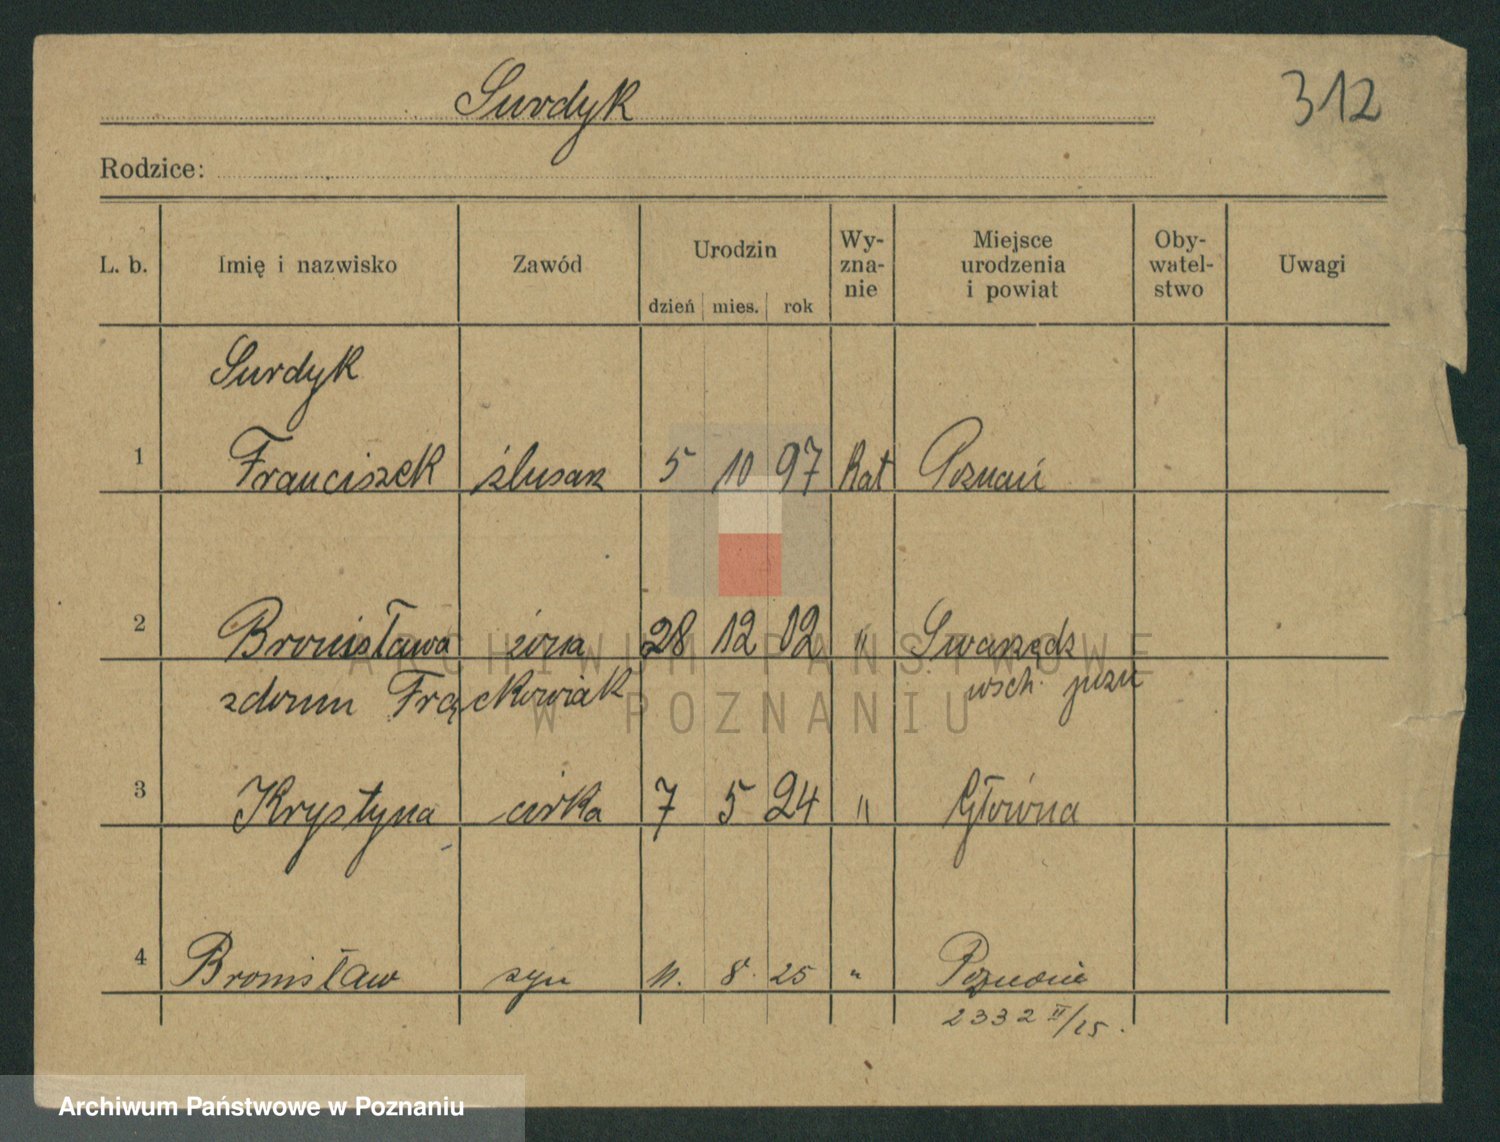 Surdyk
312
Rodzice:
L. b. Imię i nazwisko Zawód Urodzin dzień mies. rok Wy-zna-nie Miejsce urodzenia i powiat Oby-watel-stwo Uwagi
Surdyk
1 Franciszek ślusarz 5 10 97 Kat Poznań
2 Bronisława żona 28 12 02 " Swarzędz
zdomu Frąckowiak wsch. pozn
3 Krystyna córka 7 5 24 " Główna
4 Bronisław syn 11. 8. 25 "
2332 II/25.
ARCHIWUM PAŃSTWOWE
W POZNANIU
Archiwum Państwowe w Poznaniu